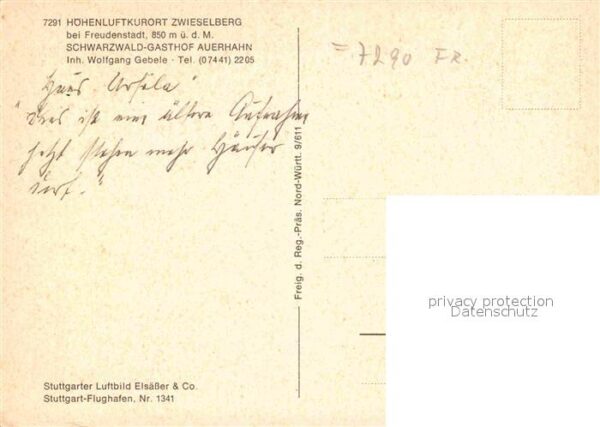 7291 HÖHENLUFTKURORT ZWIESELBERG
bei Freudenstadt, 850 m ü. d. M.
SCHWARZWALD-GASTHOF AUERHAHN
Inh. Wolfgang Gebele · Tel. (07441) 2205
= 7290 FR.
Haus Ursula
"Dies ist eine ältere Aufnahme
jetzt stehen mehr Häuser
dort."
Freig. d. Reg.-Präs. Nord-Württ. 9/611
privacy protection
Datenschutz
Stuttgarter Luftbild Elsäßer & Co.
Stuttgart-Flughafen, Nr. 1341